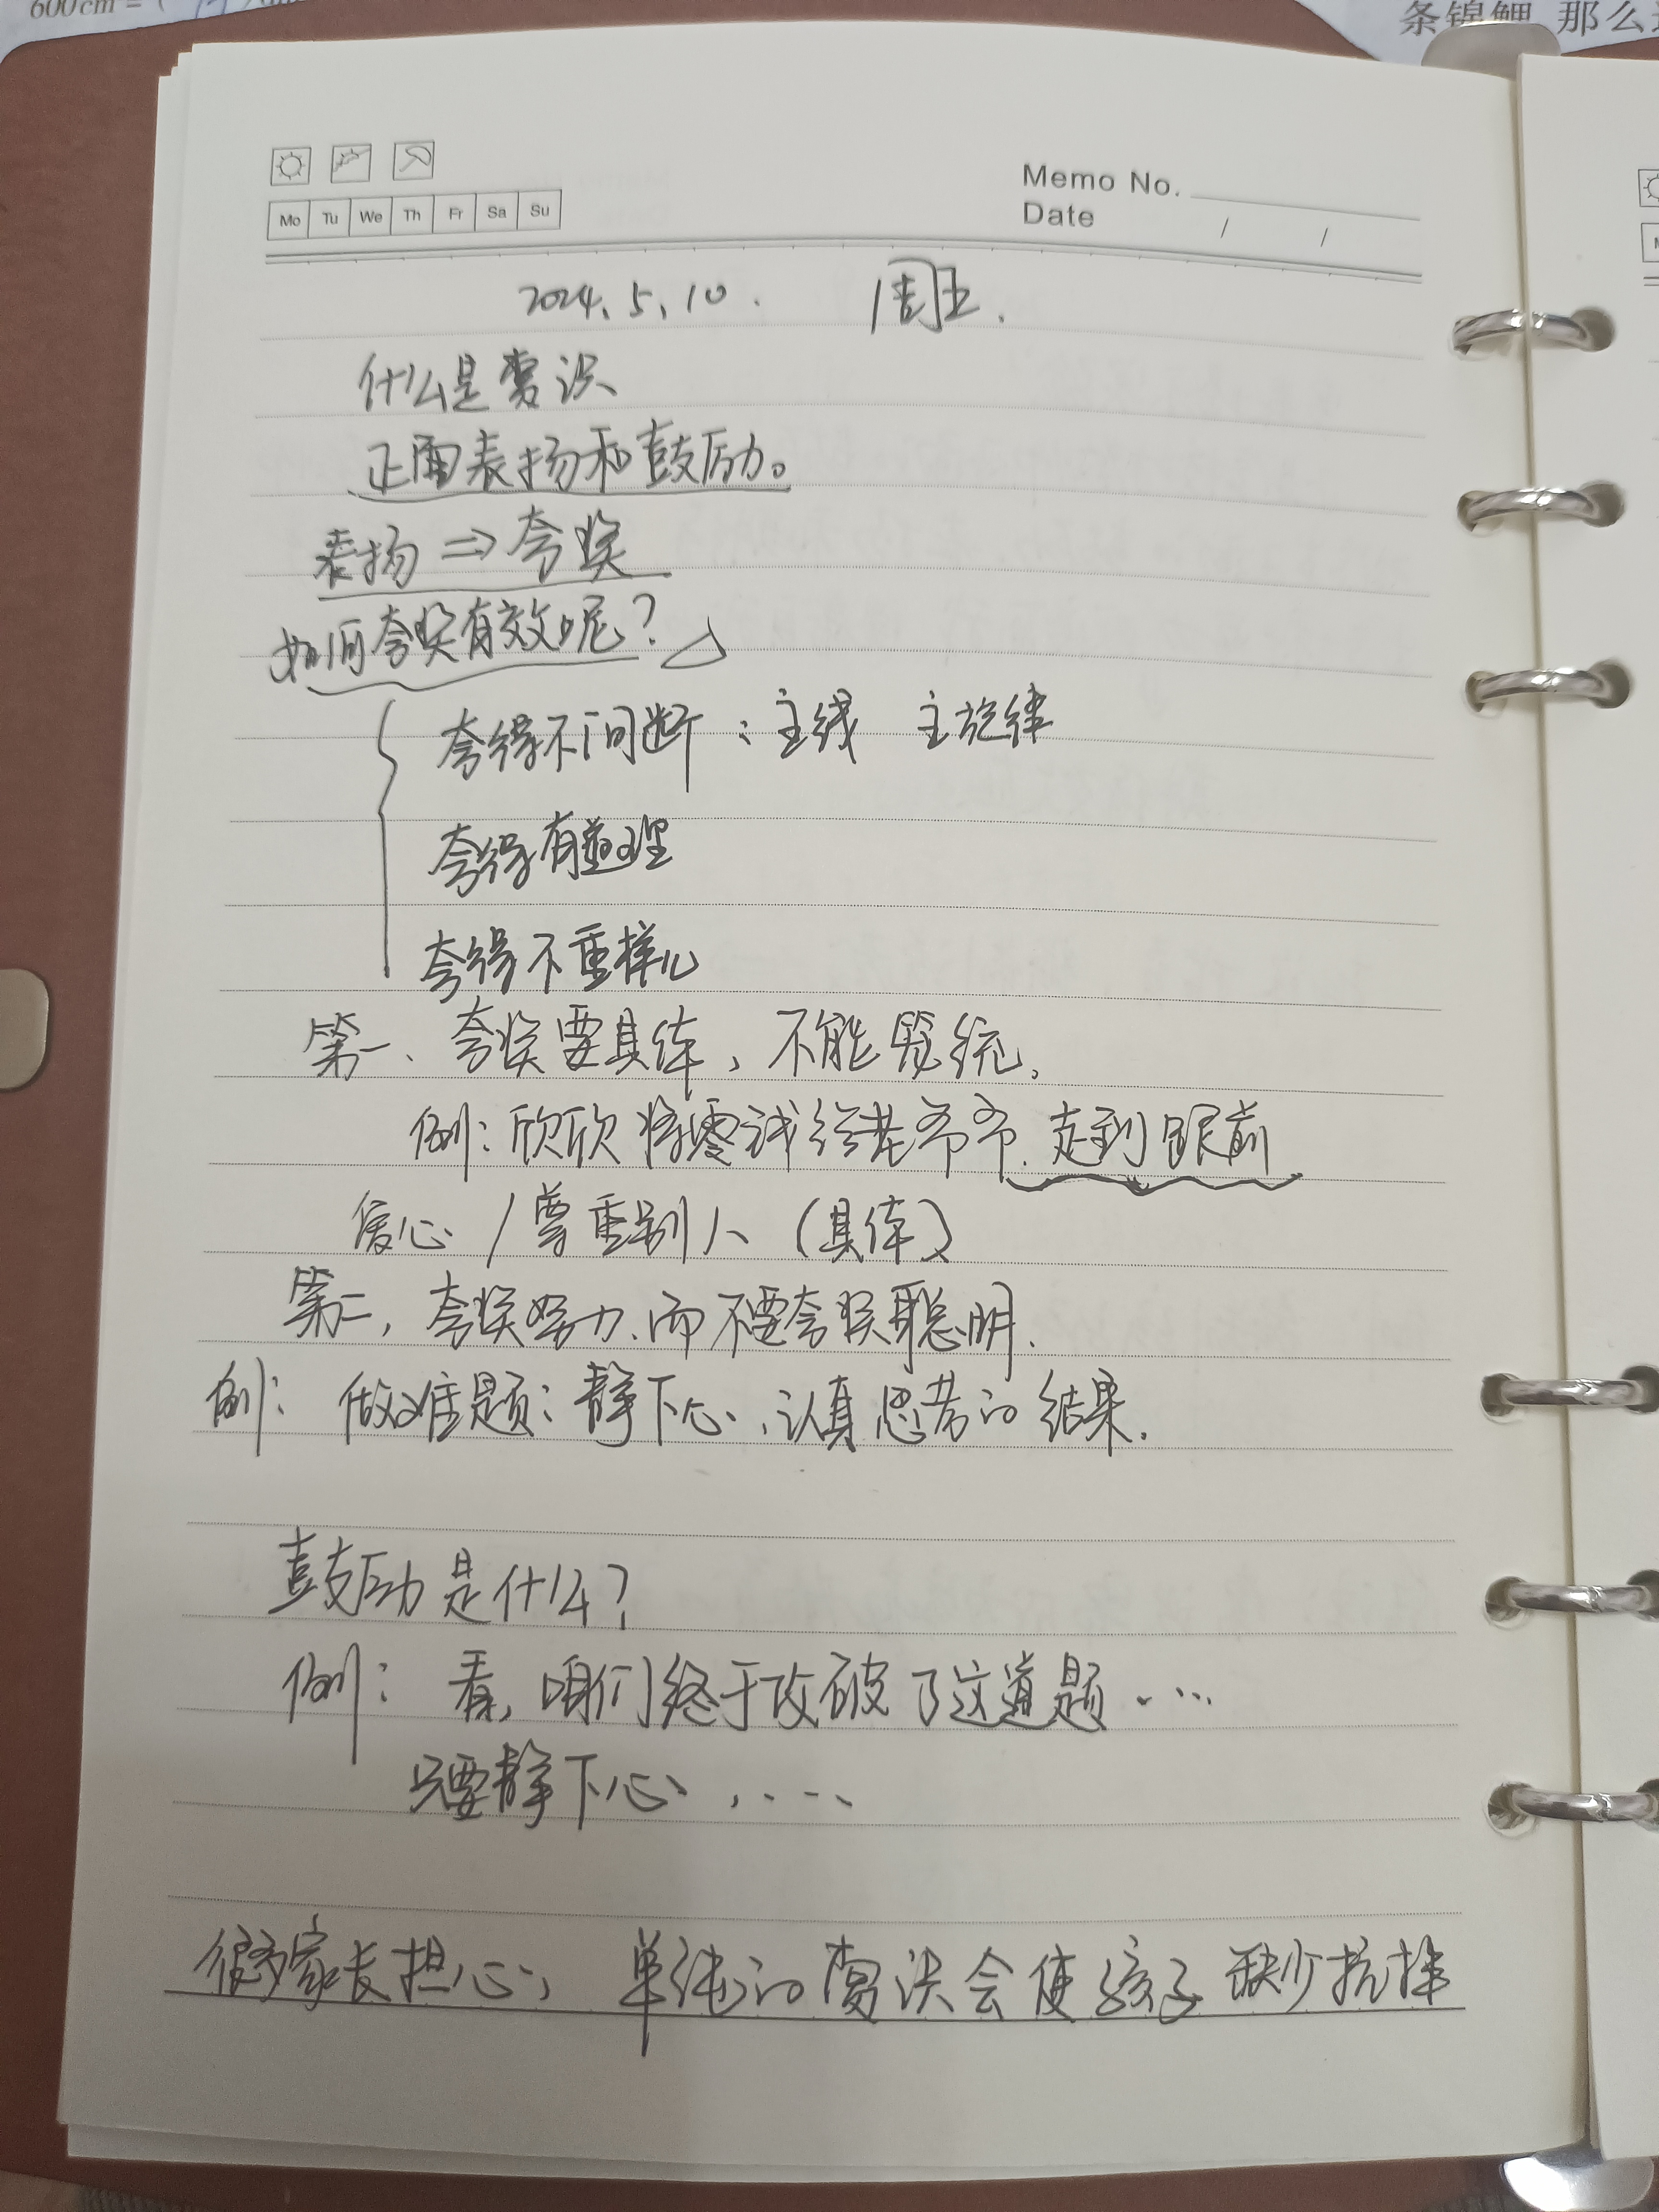 600cm = (
条锦鲤 那么
Memo No.
Mo Tu We Th Fr Sa Su
Date / /
2024.5.10. 周五.
什么是赏识
正面表扬和鼓励。
表扬 ⇒ 夸奖
如何夸奖有效呢？
夸得不间断：主线 主旋律
夸得有道理
夸得不重样儿
第一、夸奖要具体，不能笼统.
例：欣欣将零钱给老爷爷. 走到跟前
爱心 / 尊重别人（具体）
第二，夸奖努力.而不要夸奖聪明.
例：做难题：静下心，认真思考的结果.
鼓励是什么？
例：看，咱们终于攻破了这道题.....
只要静下心.....
很多家长担心，单纯的赏识会使孩子缺少抗挫